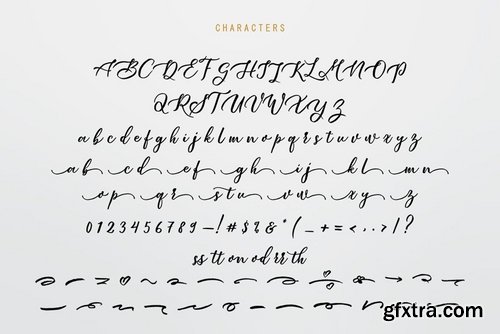 CHARACTERS
ABCDEFGHIJKLMNOP
QRSTUVWXYZ
a b c d e f g h i j k l m n o p q r s t u v w x y z
ab cd ef gh ij kl mn
op qr st uv wx yz
0 1 2 3 4 5 6 7 8 9 – ! # $ % & * ( _ + = < , . > / ?
ss tt on od rr th
gfxtra.com